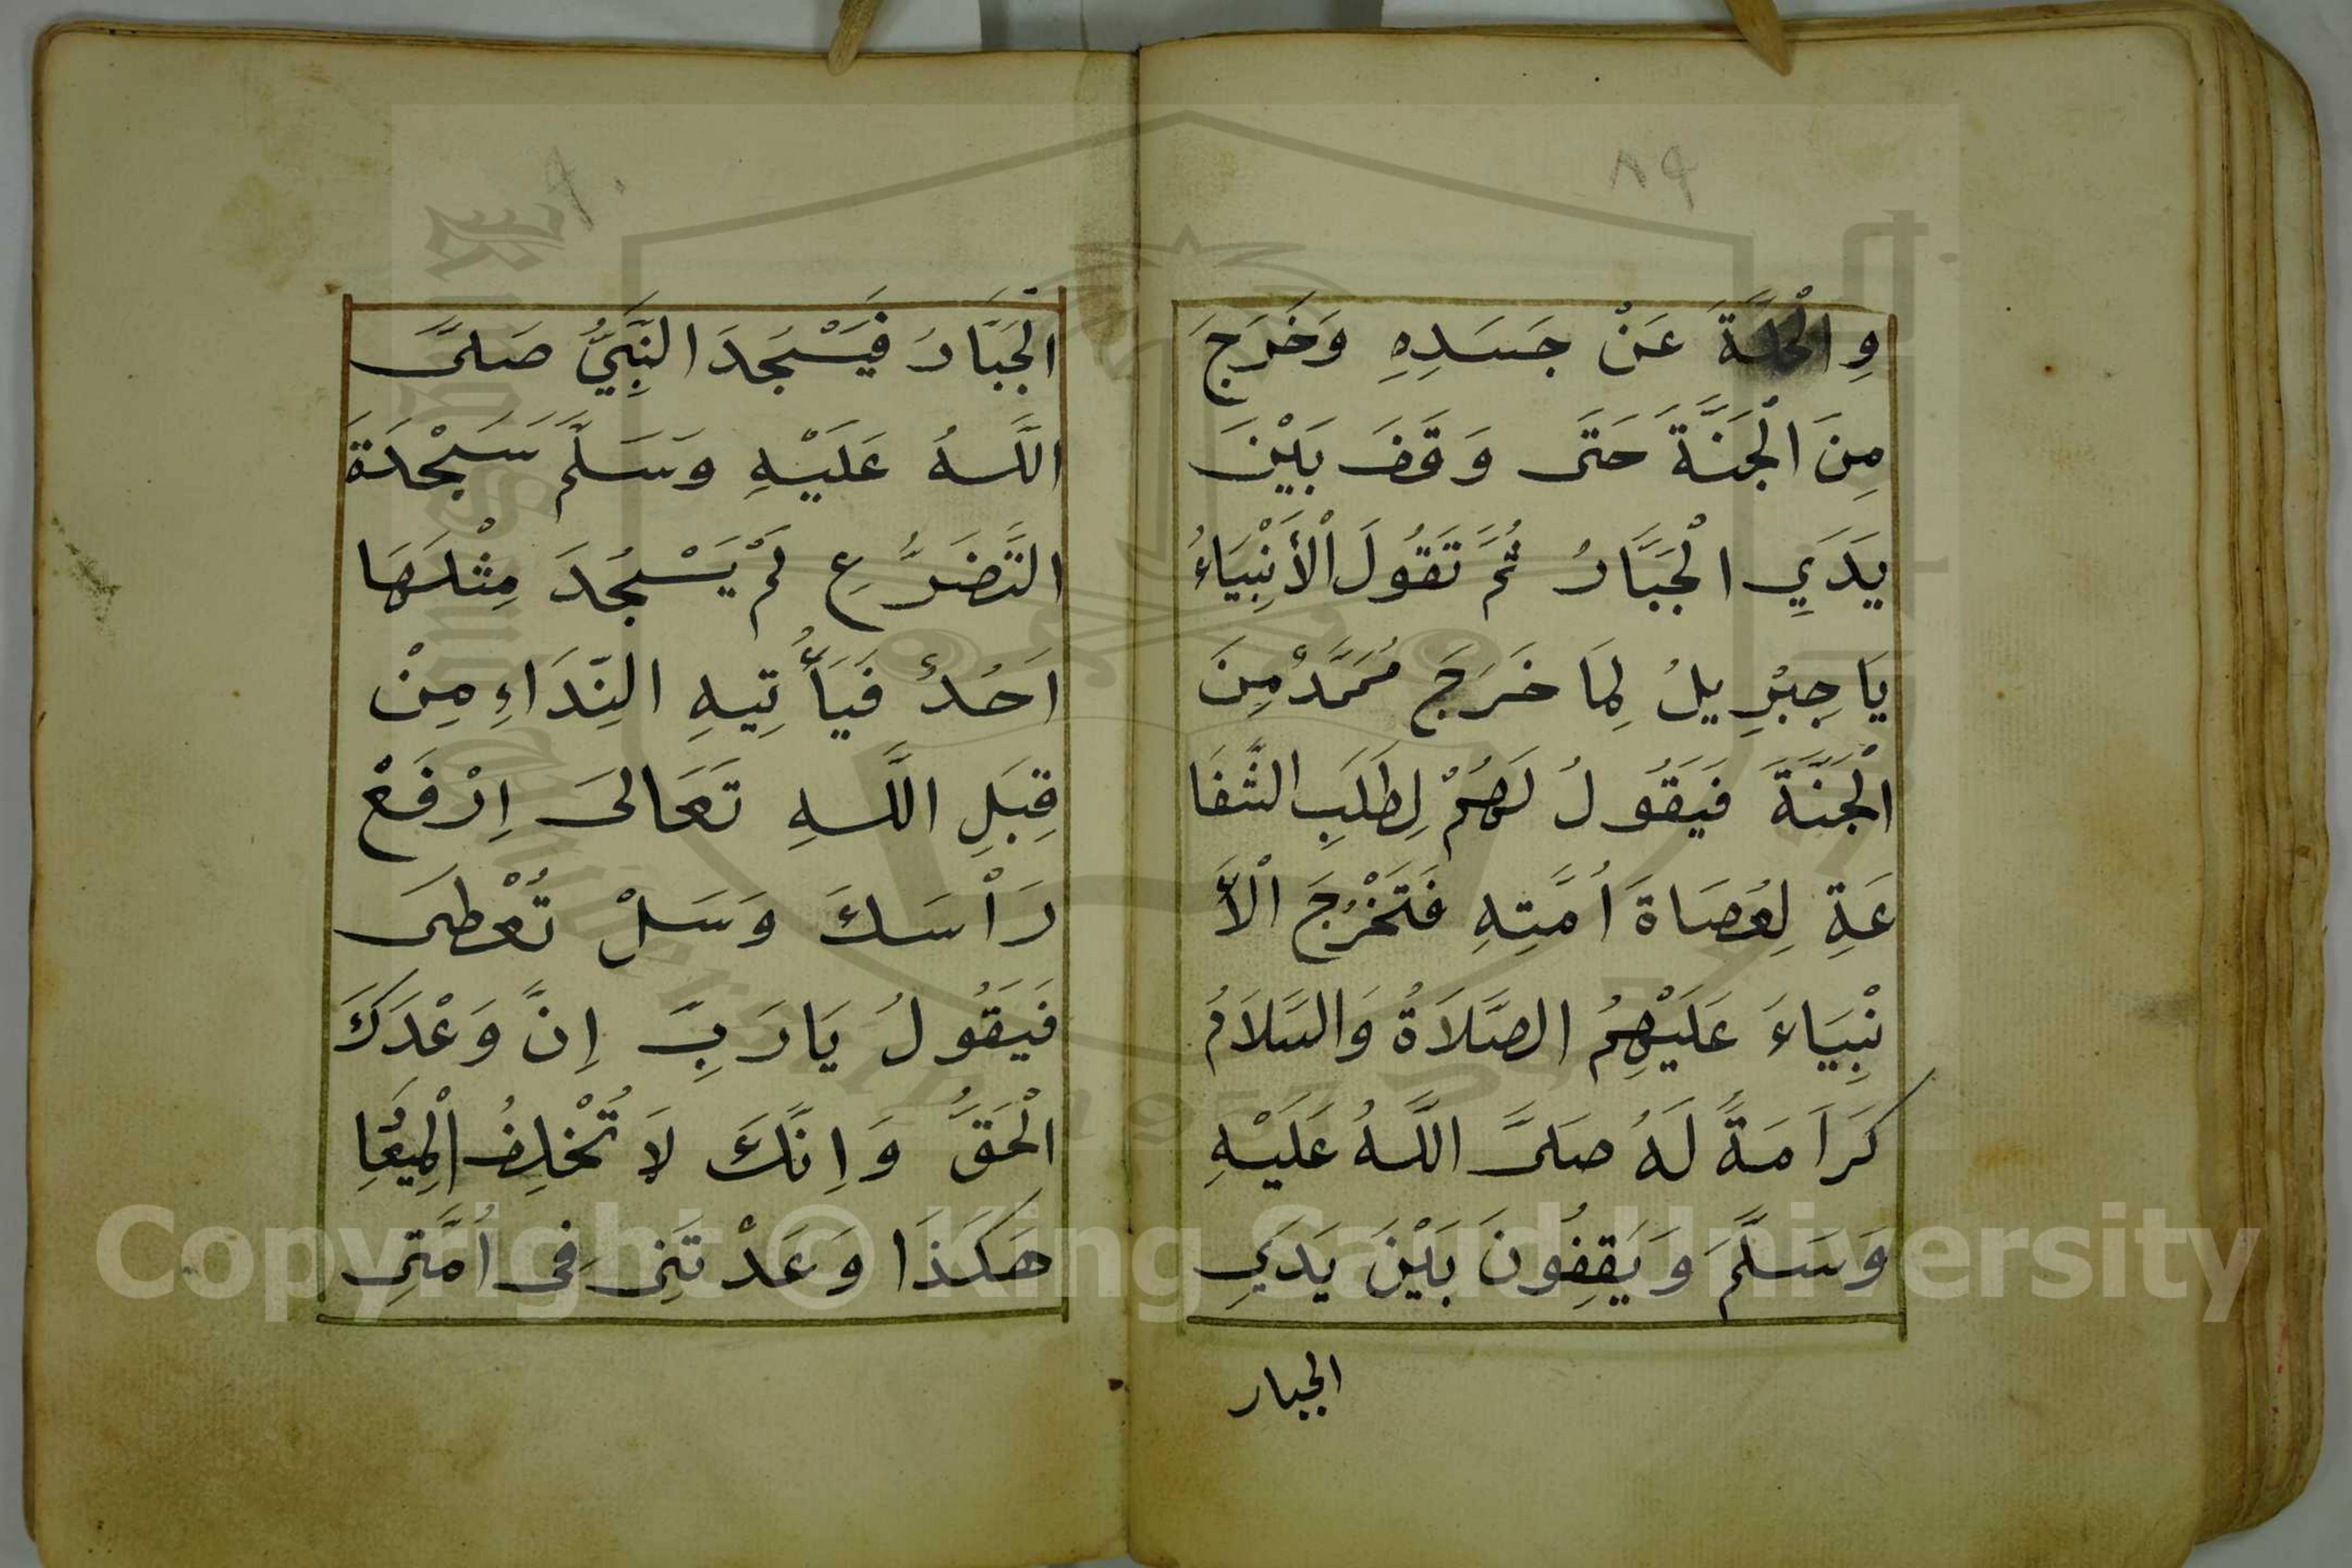 ٨٩
وِالْحُلَّةَ عَنْ جَسَدِهِ وَخَرَجَ
مِنَ الْجَنَّةَ حَتَّى وَقَفَ بَيْنَ
يَدَيِ الْجَبَّارُ ثُمَّ تَقُولَ الْأَنْبِيَاءُ
يَا جِبْرِيلُ لِمَا خَرَجَ مُحَمَّدْ مِنَ
الْجَنَّةَ فَيَقُولُ لَهُمْ لِطَلَبِ الشَّفَا
عَةِ لِعُصَاةَ اُمَّتِهِ فَتَخْرُجَ الْأَ
نْبِيَاءَ عَلَيْهِمُ الصَّلَاةُ وَالسَّلَامُ
كَرَاَمَةً لَهُ صَلَّى اللَّهُ عَلَيْهِ
وَسَلَّمَ وَيَقِفُونَ بَيْنَ يَدَيِ
الجبار
٩٠
الْجَبَّارُ فَيَسْجُدَ النَّبِيُّ صَلَّى
اللَّهُ عَلَيْهِ وَسَلَّمَ سَجْدَةَ
التَّضَرُّعِ لَمْ يَسْجُدَ مِثْلَهَا
اَحُدٌ فَيَأْتِيهِ النِّدَاءِ مِنْ
قِبَلِ اللَّهِ تَعَالَى اِرْفَعْ
رَاْسَكَ وَسَلْ تُعْطَى
فَيَقُولُ يَارَبِّ إِنَّ وَعْدَكَ
الْحَقُّ وَاِنَّكَ لَا تُخْلِفُ الْمِيعَا
هَكَذَا وَعَدْتَنِى فِى اُمَّتِى
Copyright © King Saud University